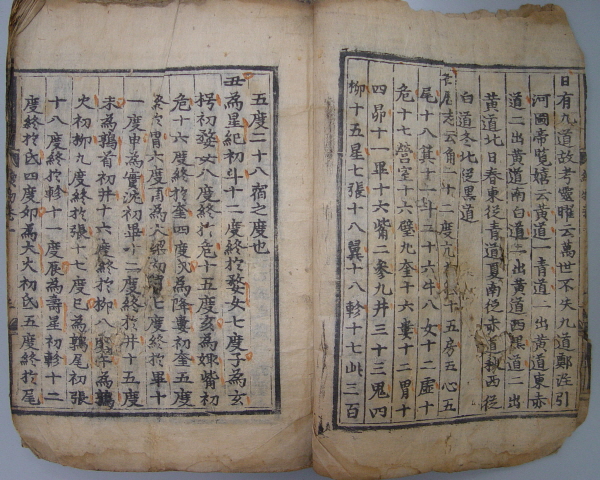 日有九道故考靈曜云萬世不失九道鄭注引
河圖帝覽嬉云黃道一青道二出黃道東赤
道二出黃道南白道二出黃道西黑道二出
黃道北日春東從青道夏南從赤道秋西從
白道冬北從黑道
云角十二度亢九氐十五房五心五
尾十八箕十一斗二十六牛八女十二虛十
危十七營室十六壁九奎十六婁十二胃十
四昴十一畢十六觜二參九井三十三鬼四
柳十五星七張十八翼十八軫十七此三百
五度二十八宿之度也
丑為星紀初斗十二度終於婺女七度子為玄
枵初婺女八度終於危十五度亥為娵觜初
危十六度終於奎四度戌為降婁初奎五度
終於胃六度酉為大梁初胃七度終於畢十
一度申為實沈初畢十二度終於井十五度
未為鶉首初井十六度終於柳八度午為鶉
火初柳九度終於張十七度巳為鶉尾初張
十八度終於軫十一度辰為壽星初軫十二
度終於氐四度卯為大火初氐五度終於尾